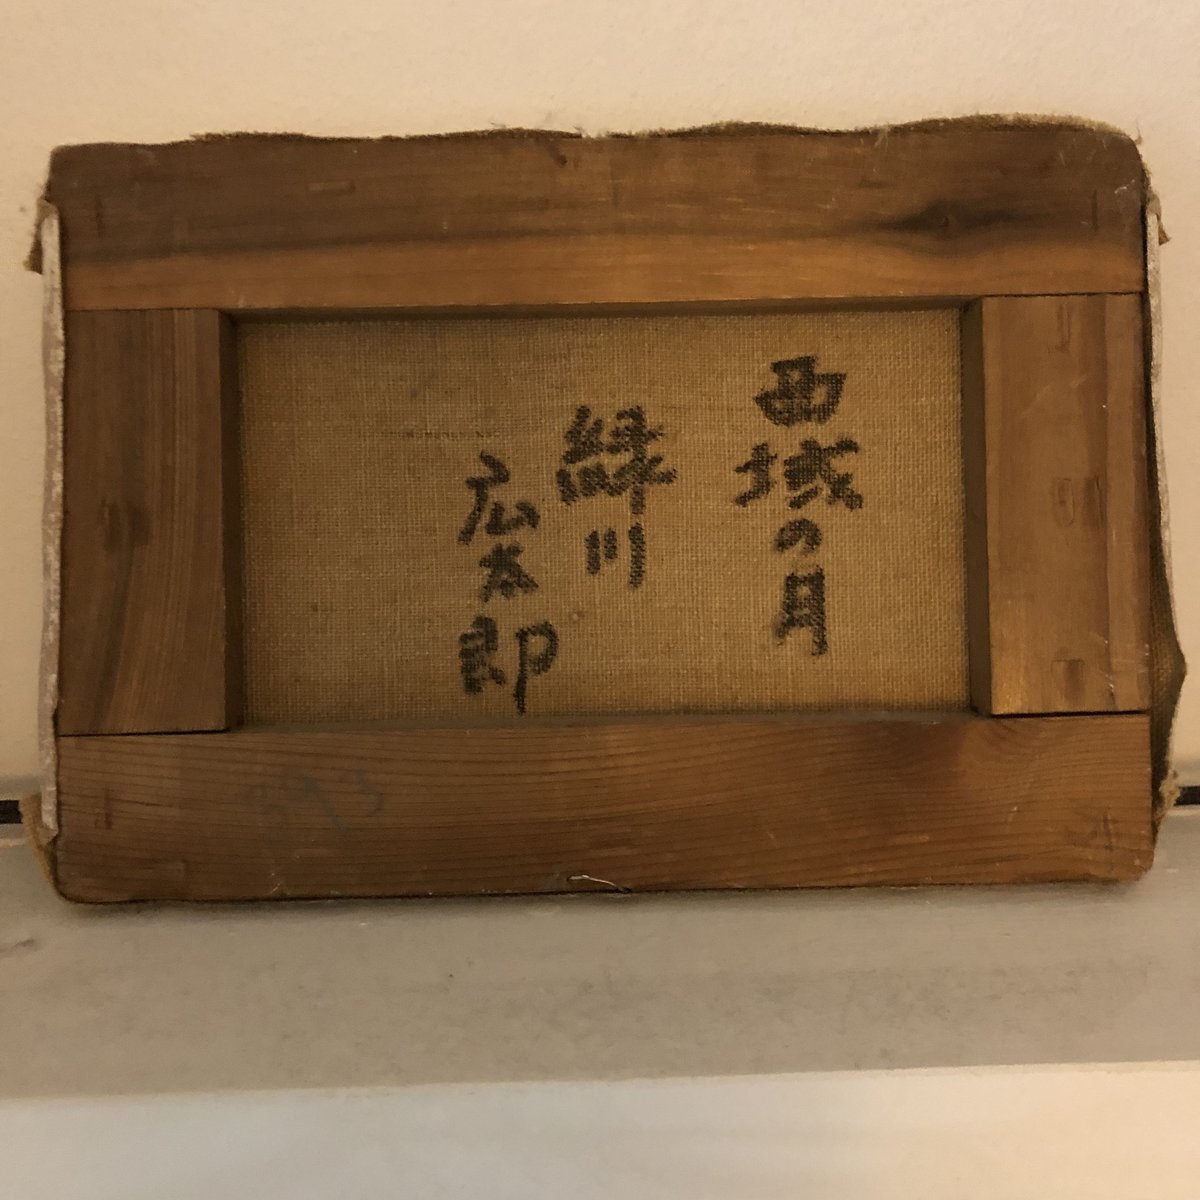 西域の月
緑川
広太郎